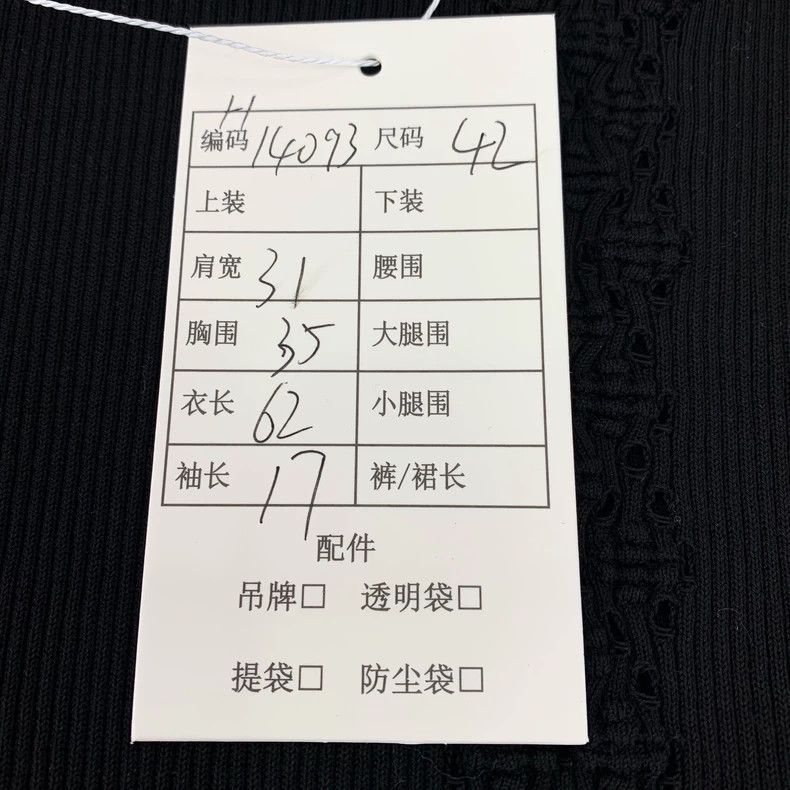 H
编码 14093 尺码 42
上装 下装
肩宽 31 腰围
胸围 35 大腿围
衣长 62 小腿围
袖长 17 裤/裙长
配件
吊牌□ 透明袋□
提袋□ 防尘袋□